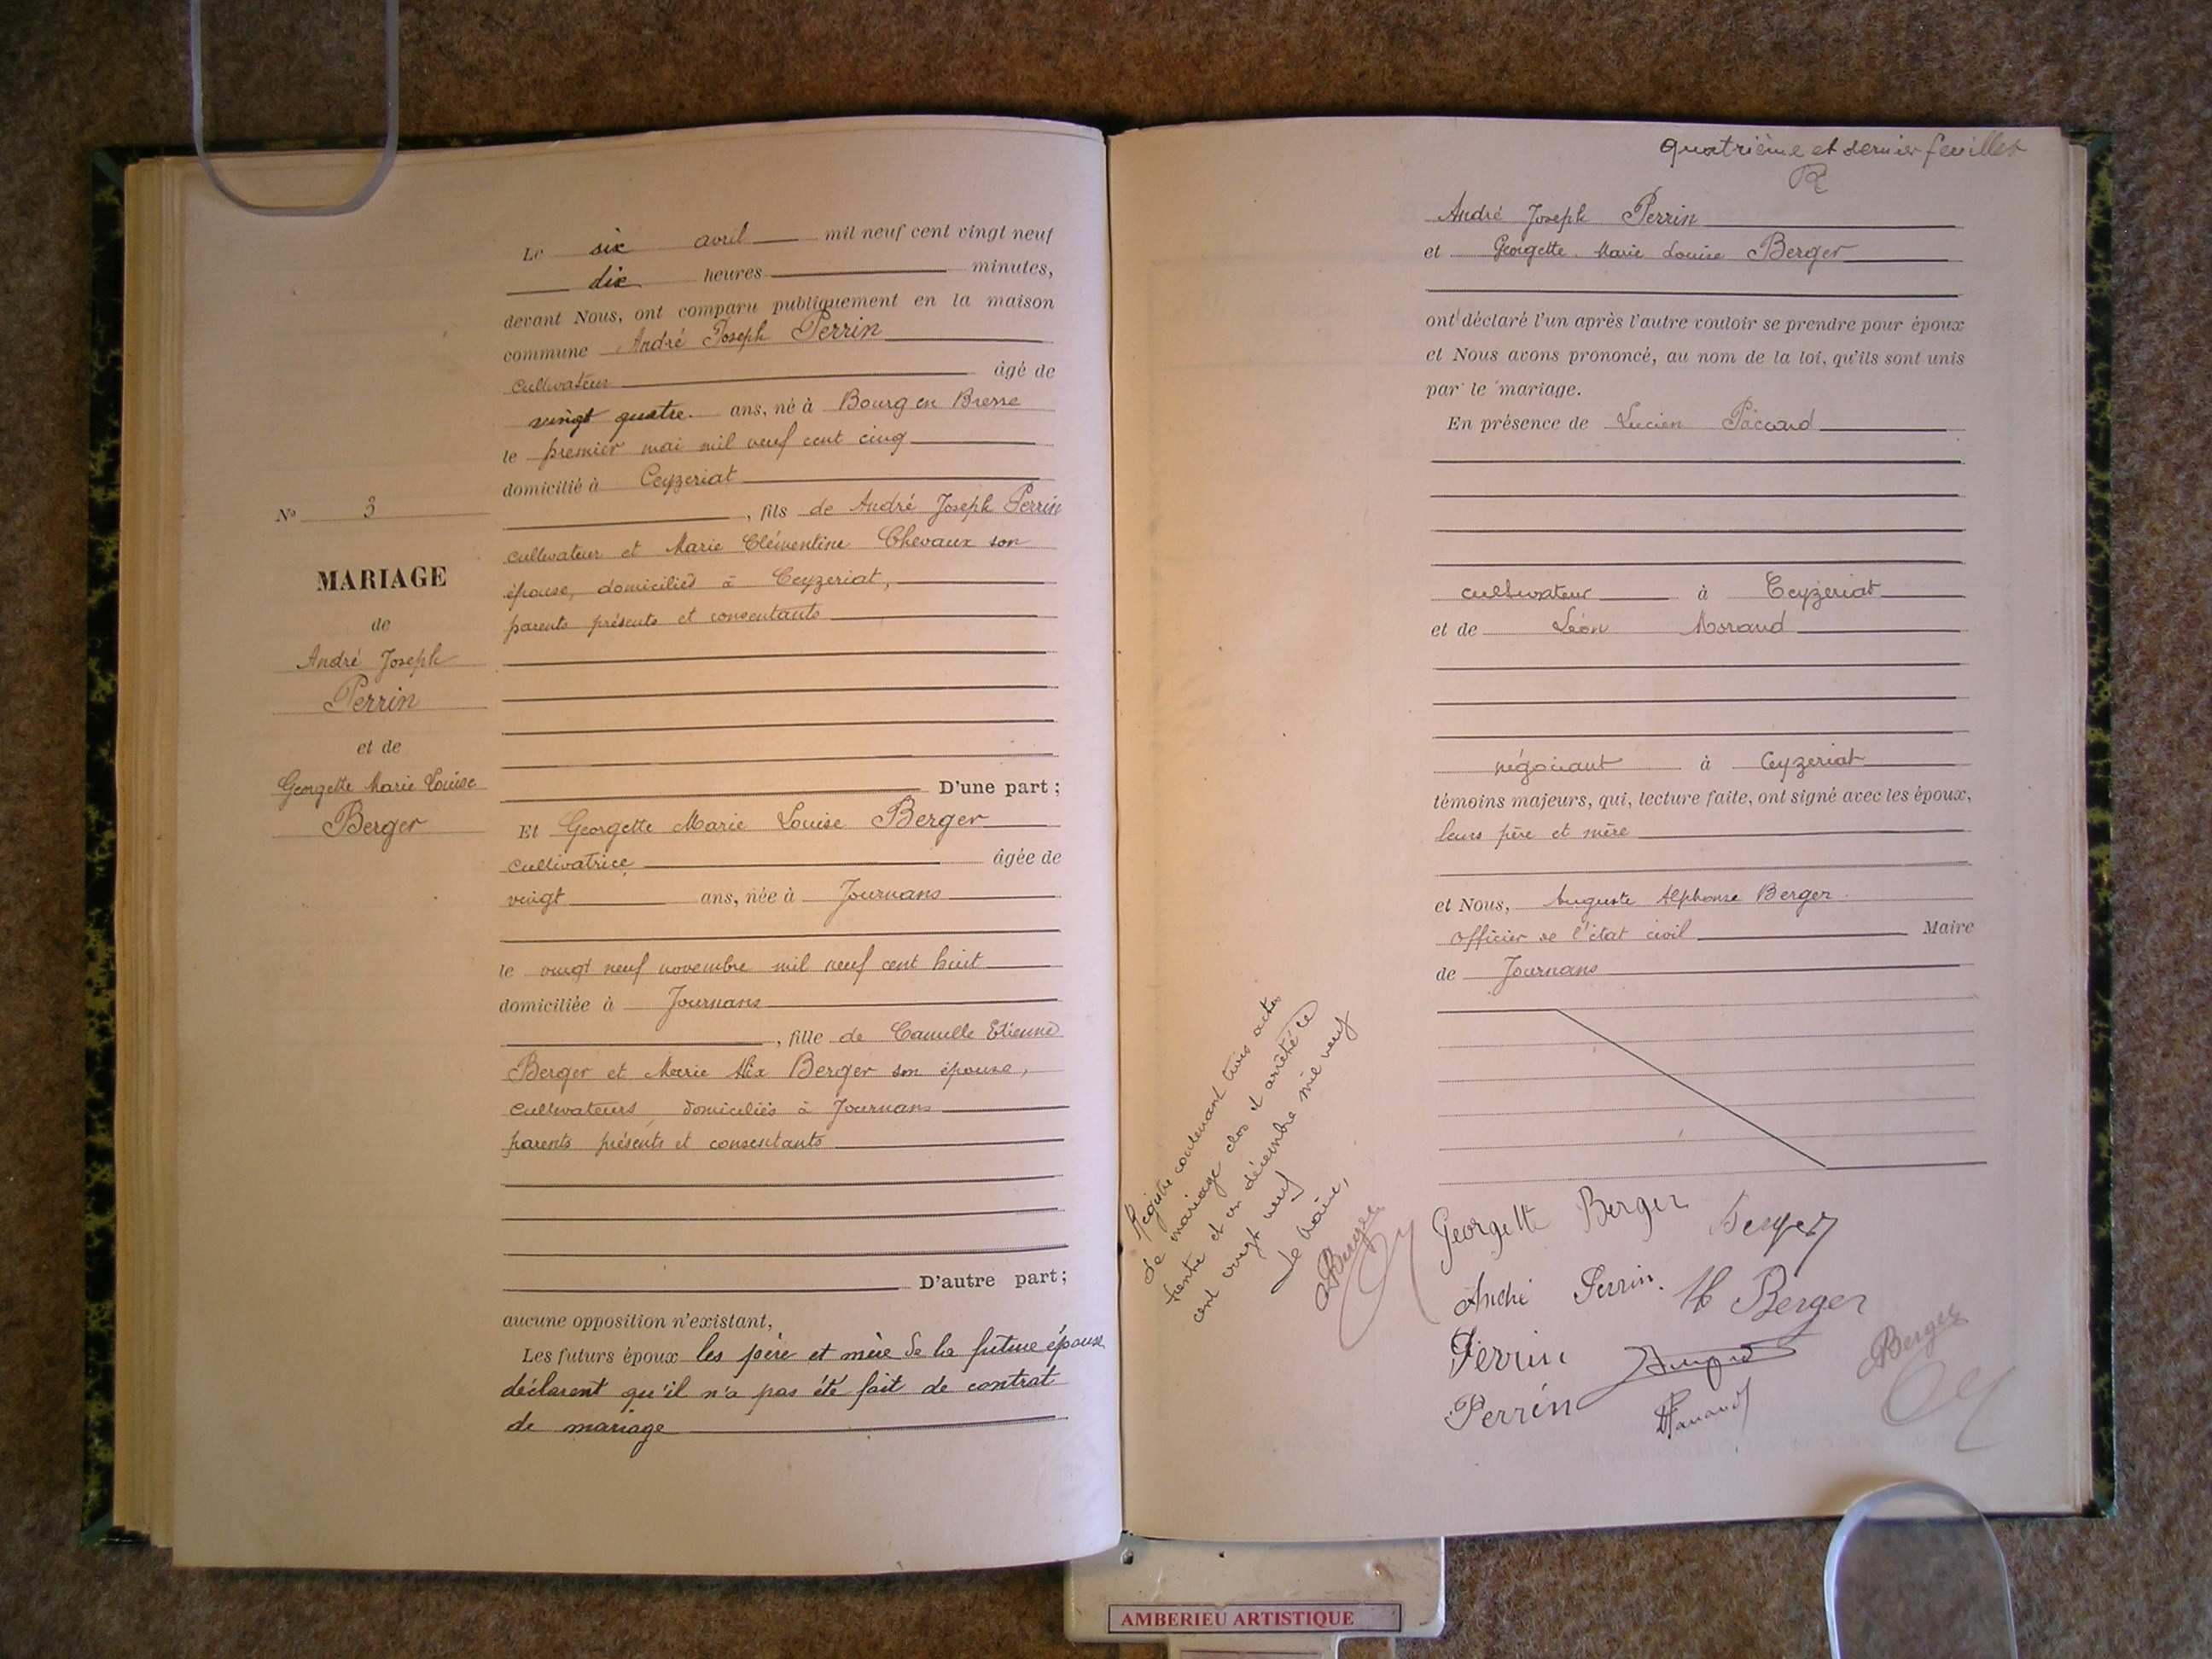 Le six avril mil neuf cent vingt neuf
dix heures minutes,
devant Nous, ont comparu publiquement en la maison
commune André Joseph Perrin
cultivateur âgé de
vingt quatre ans, né à Bourg en Bresse
le premier mai mil neuf cent cinq
domicilié à Ceyzeriat
, fils de André Joseph Perrin
cultivateur et Marie Clémentine Chevaux son
épouse, domiciliés à Ceyzeriat,
parents présents et consentants
D'une part ;
Et Georgette Marie Louise Berger
cultivatrice âgée de
vingt ans, née à Journans
le vingt neuf novembre mil neuf cent huit
domiciliée à Journans
, fille de Camille Etienne
Berger et Marie Alix Berger son épouse,
cultivateurs domiciliés à Journans
parents présents et consentants
D'autre part ;
aucune opposition n'existant,
Les futurs époux les père et mère de la future épouse
déclarent qu'il n'a pas été fait de contrat
de mariage
N° 3
MARIAGE
de
André Joseph
Perrin
et de
Georgette Marie Louise
Berger
quatrième et dernier feuillet
André Joseph Perrin
et Georgette Marie Louise Berger
ont déclaré l'un après l'autre vouloir se prendre pour époux
et Nous avons prononcé, au nom de la loi, qu'ils sont unis
par le mariage.
En présence de Lucien Pacoud
cultivateur à Ceyzeriat
et de Léon Morand
négociant à Ceyzeriat
témoins majeurs, qui, lecture faite, ont signé avec les époux,
leurs père et mère
et Nous, Auguste Alphonse Berger
officier de l'état civil Maire
de Journans
Registre contenant trois actes
de mariage clos et arrêté le
trente et un décembre mil neuf
cent vingt neuf
Le Maire,
Berger
Georgette Berger Berger
André Perrin. M Berger
Perrin
Perrin
Berger
AMBERIEU ARTISTIQUE